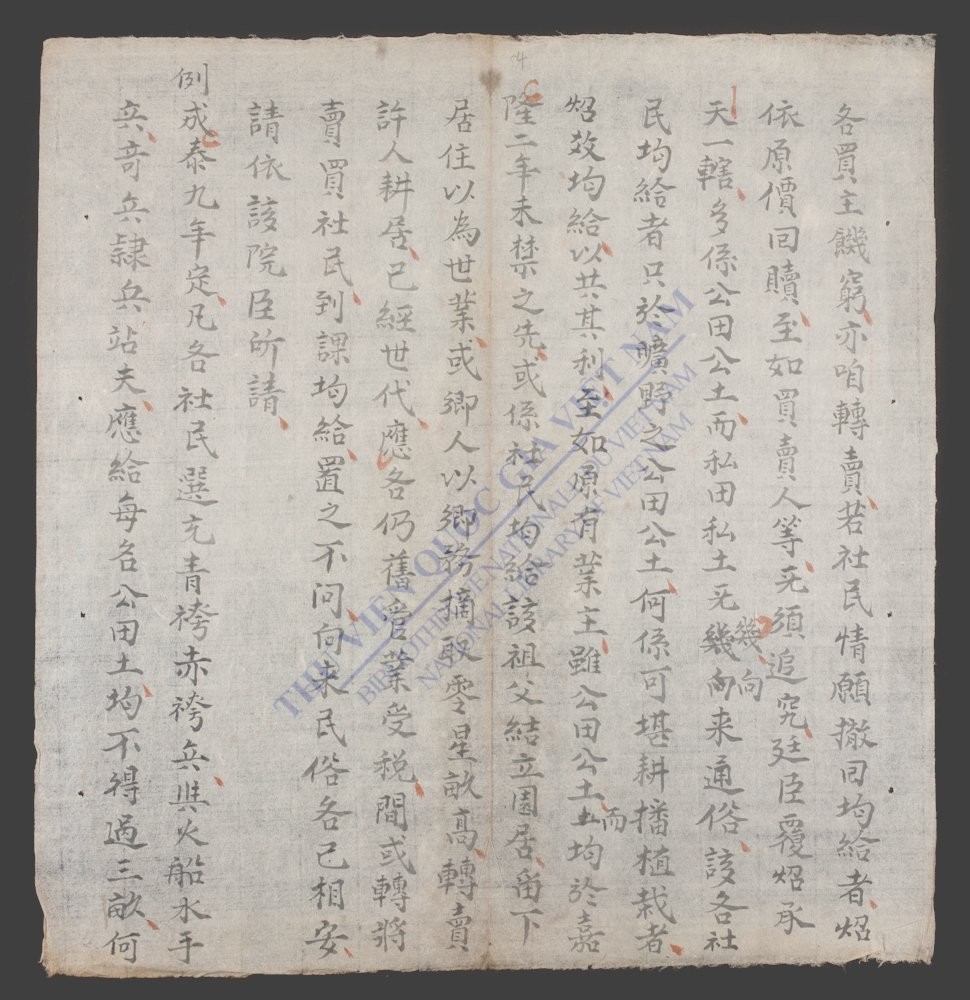 各買主饑窮亦咱轉賣若社民情願撤回均給者炤
依原價回贖至如買賣人等旡須追究廷臣覆炤承
幾向
天一轄多係公田公土而私田私土旡幾向来通俗該各社
民均給者只於曠野之公田公土何係可堪耕播植栽者
而
炤效均給以共其利至如原有業主雖公田公土均於嘉
隆二年未禁之先或係社民均給該祖父結立園居畱下
居住以為世業或鄉人以鄉務摘取零星畝高轉賣
許人耕居已經世代應各仍舊管業受稅間或轉將
賣買社民到課均給置之不问向来民俗各已相安
請依該院臣所請
例成泰九年定凡各社民選充青袴赤袴兵與火船水手
兵竒兵隸兵站夫應給每名公田土均不得過三畝何
4
THƯ VIỆN QUỐC GIA VIỆT NAM
BIBLIOTHÈQUE NATIONALE DU VIETNAM
NATIONAL LIBRARY OF VIETNAM